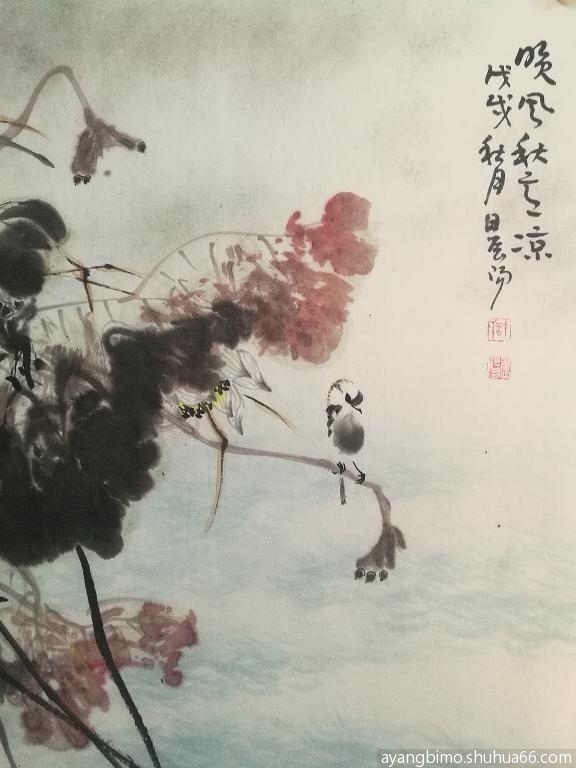 晚风秋意凉
戊戌秋月晨阳
ayangbimo.shuhua66.com